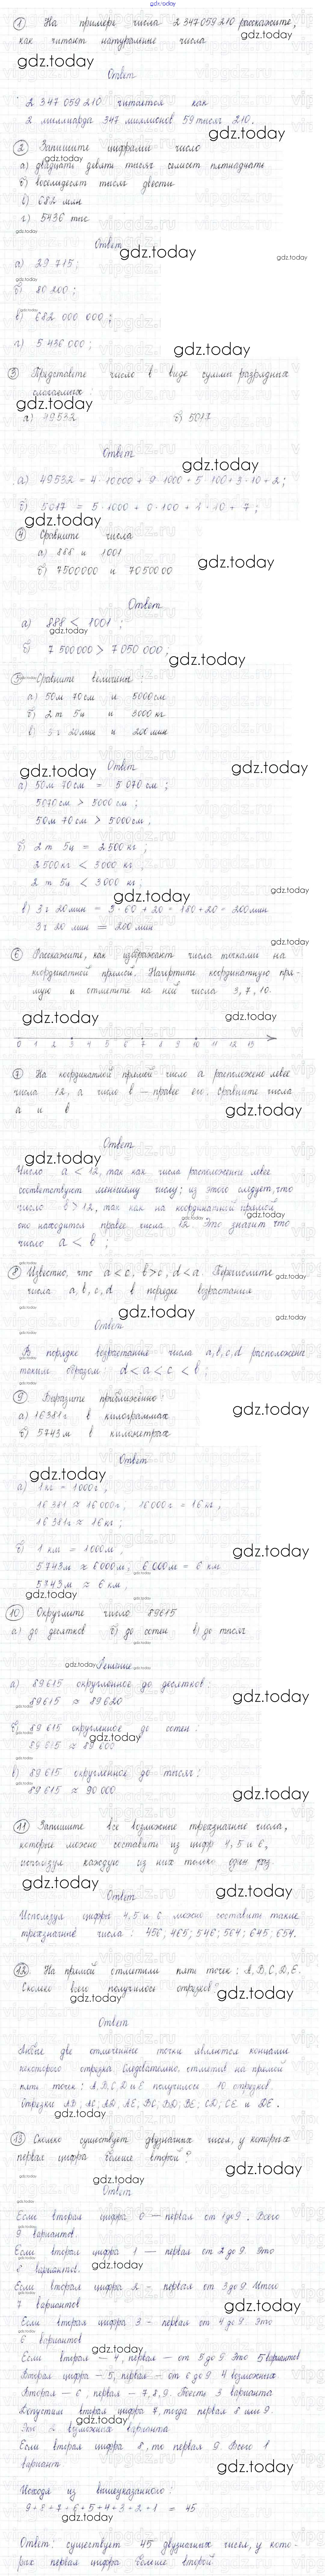 gdz.today
① На примере числа 2 347 059 210 расскажите,
как читают натуральные числа
Ответ
2 347 059 210 читается как
2 миллиарда 347 миллионов 59 тысяч 210.
② Запишите цифрами число
а) двадцать девять тысяч семьсот пятнадцать
б) восемьдесят тысяч двести
в) 682 млн
г) 5436 тыс
Ответ
а) 29 715;
б) 80 200;
в) 682 000 000;
г) 5 436 000;
③ Представьте число в виде суммы разрядных
слагаемых:
а) 49532 б) 5017
Ответ
а) 49532 = 4·10000 + 9·1000 + 5·100 + 3·10 + 2;
б) 5017 = 5·1000 + 0·100 + 1·10 + 7;
④ Сравните числа
а) 888 и 1001
б) 7500000 и 7050000
Ответ
а) 888 < 1001;
б) 7 500000 > 7 050 000;
⑤ Сравните величины:
а) 50м 70см и 5000см
б) 2т 5ц и 3000кг
в) 3ч 20мин и 200мин
Ответ
а) 50м 70см = 5 070см;
5070см > 5000см;
50м 70см > 5000см;
б) 2т 5ц = 2500кг;
2500кг < 3000кг;
2т 5ц < 3000кг;
в) 3ч 20мин = 3·60 + 20 = 180+20 = 200мин
3ч 20 мин = 200 мин
⑥ Расскажите, как изображают числа точками на
координатной прямой. Начертите координатную пря-
мую и отметьте на ней числа 3, 7, 10.
0 1 2 3 4 5 6 7 8 9 10 11 12 13
⑦ На координатной прямой число а расположено левее
числа 12, а число в — правее его. Сравните числа
а и в
Ответ
Число а < 12, так как числа расположение левее
соответствуют меньшему числу; из этого следует, что
число в > 12, так как на координатной прямой
оно находится правее числа 12. Это значит что
число а < в;
⑧ Известно, что а < с, в > с, d < а. Перечислите
числа а, в, с, d в порядке возрастания
Ответ
В порядке возрастания числа а, в, с, d расположены
таким образом: d < а < с < в;
⑨ Выразите приближённо:
а) 16381г в килограммах
б) 5743м в километрах
Ответ
а) 1кг = 1000г;
16 381 ≈ 16 000г, 16000г = 16кг;
16381г ≈ 16кг;
б) 1 км = 1000м;
5743м ≈ 6000м, 6 000м = 6 км
5743м ≈ 6 км;
⑩ Округлите число 89615
а) до десятков б) до сотен в) до тысяч
Решение
а) 89615 округленное до десятков:
89615 ≈ 89620
б) 89 615 округленное до сотен:
89 615 ≈ 89 600
в) 89 615 округленное до тысяч:
89615 ≈ 90 000
⑪ Запишите все возможные трехзначные числа,
которые можно составить из цифр 4, 5 и 6,
используя каждую из них только один раз.
Ответ
Используя цифры 4, 5 и 6 можно составить такие
трехзначные числа: 456; 465; 546; 564; 645; 654.
⑫ На прямой отметили пять точек: A, B, C, D, E.
Сколько всего получилось отрезков?
Ответ
Любые две отмеченные точки являются концами
некоторого отрезка. Следовательно, отметив на прямой
пять точек: A, B, C, D и E получилось 10 отрезков
Отрезки AB; AC; AD; AE; BC; BD; BE; CD; CE и DE.
⑬ Сколько существует двузначных чисел, у которых
первая цифра больше второй?
Ответ
Если вторая цифра 0 — первая от 1 до 9. Всего
9 вариантов.
Если вторая цифра 1 — первая от 2 до 9. Это
8 вариантов.
Если вторая цифра 2 - первая от 3 до 9. Итого
7 вариантов
Если вторая цифра 3 - первая от 4 до 9. Это
6 вариантов
Если вторая — 4, первая — от 5 до 9. Это 5 вариантов
Вторая цифра — 5, первая — от 6 до 9. 4 возможных.
Вторая — 6, первая — 7, 8, 9. То есть 3 варианта
Допустим вторая цифра 7, тогда первая 8 или 9.
Это 2 возможных варианта
Если вторая цифра 8, то первая 9. Всего 1
вариант
Исходя из вышеуказанного:
9+8+7+6+5+4+3+2+1 = 45
Ответ: существует 45 двузначных чисел, у кото-
рых первая цифра больше второй.